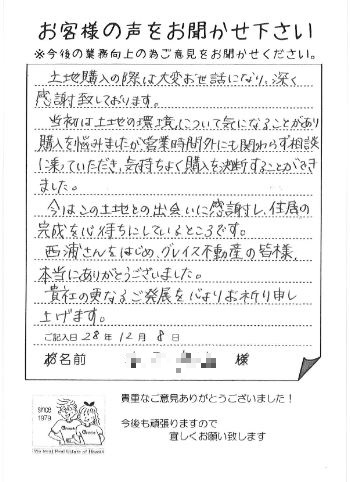 お客様の声をお聞かせ下さい
※今後の業務向上の為ご意見をお聞かせください。
土地購入の際は大変お世話になり、深く
感謝致しております。
当初は土地の環境について気になることがあり
購入を悩みましたが営業時間外にも関わらず相談
に乗っていただき、気持ちよく購入を決断することができ
ました。
今はこの土地との出会いに感謝し、住居の
完成を心待ちにしているところです。
西浦さんをはじめ、グレイス不動産の皆様、
本当にありがとうございました。
貴社の更なるご発展を心よりお祈り申し
上げます。
ご記入日 28年 12月 8日
お名前 様
貴重なご意見ありがとうございました！
since
1979
今後も頑張りますので
宜しくお願い致します
We Next Real Estate of Grace